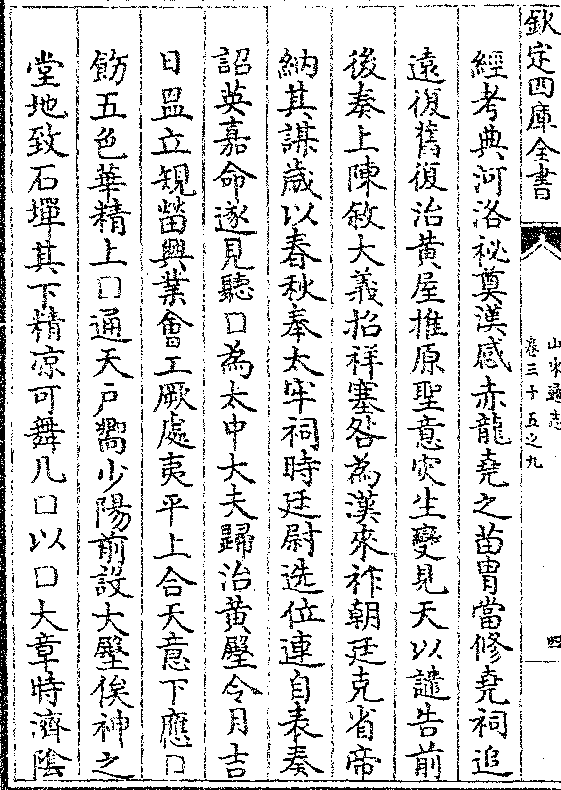 欽定四庫全書
山東通志
卷三十五之九
四
經考典河洛祕奠漢感赤龍堯之苗胄當修堯祠追
遠復舊復治黃屋推原聖意灾生變見天以譴告前
後奏上陳敘大義招祥塞咎為漢來祚朝廷克省帝
納其謀歲以春秋奉太牢祠時廷尉选位連自表奏
詔英嘉命遂見聽□為太中大夫歸治黃壂令月吉
日圼立規𤲞興業會工厥處夷平上合天意下應□
飭五色華精上□通天戶嚮少陽前設大壂俟神之
堂地致石墠其下精凉可舞几□以□大章時濟陰